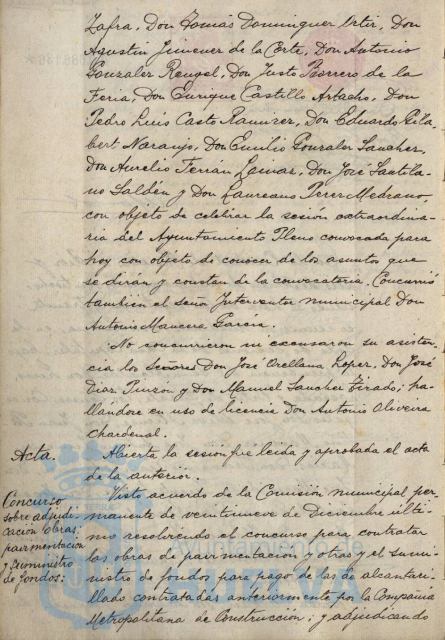 Zafra, Don Tomás Dominguez Ortiz, Don
Agustin Jimenez de la Corte, Don Antonio
Gonzalez Rengel, Don Justo Borrero de la
Feria, Don Enrique Castillo Artacho, Don
Pedro Luis Casto Ramirez, Don Eduardo Gila
bert Naranjo, Don Emilio Gonzalez Sanchez,
Don Aurelio Terrán Lainaz, Don José Santila-
no Salden y Don Laureano Perez Medrano,
con objeto de celebrar la sesión extraordina-
ria del Ayuntamiento Pleno convocada para
hoy con objeto de conocer de los asuntos que
se dirán y constan de la convocatoria. Concurrió
también el señor Interventor municipal Don
Antonio Mancera García.
No concurrieron ni excusaron su asisten-
cia los Señores Don José Orellana Lopez, Don José
Diaz Pinzón y Don Manuel Sanchez Tirado; ha-
llándose en uso de licencia Don Antonio Oliveira
Chardenal.
Acta. Abierta la sesión fué leida y aprobada el acta
de la anterior.
Concurso
sobre adjudi
cación obras
pavimentación
y suministro
de fondos:
Visto acuerdo de la Comisión municipal per-
manente de veintinueve de Diciembre ulti-
mo resolviendo el concurso para contratar
las obras de pavimentación y otras y el sumi-
nistro de fondos para pago de las de alcantari-
llado contratadas anteriormente por la Compañia
Metropolitana de Construcción; y adjudicando